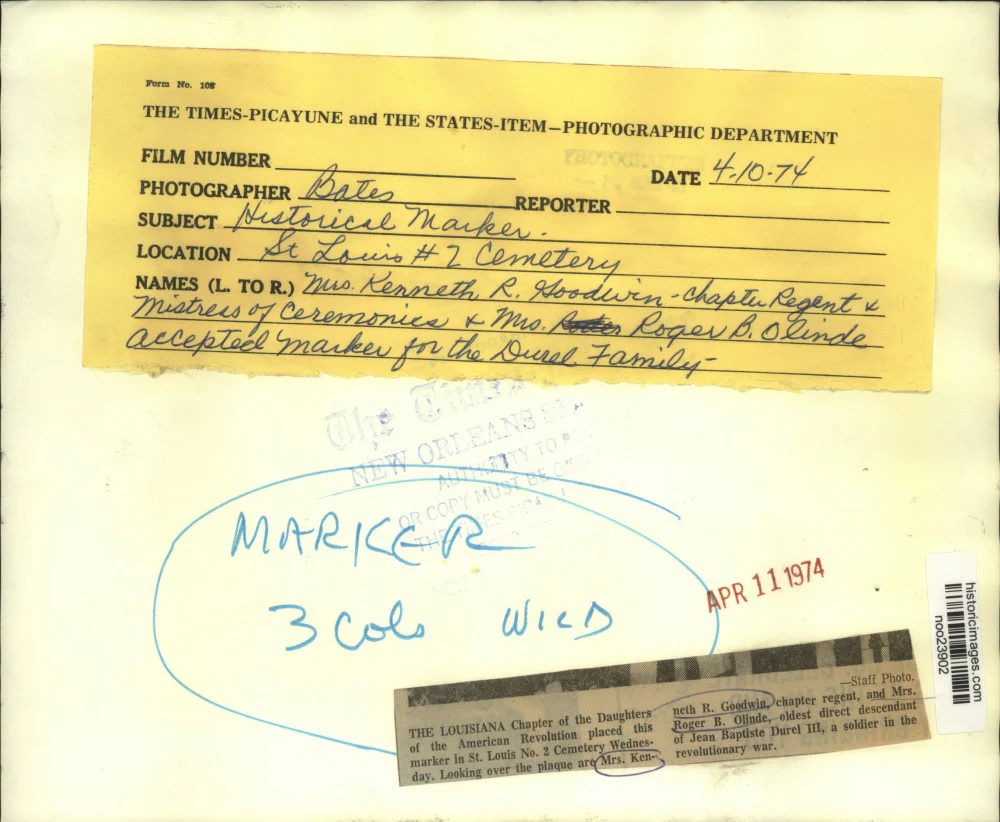 Form No. 108
THE TIMES-PICAYUNE and THE STATES-ITEM—PHOTOGRAPHIC DEPARTMENT
FILM NUMBER
DATE 4-10-74
PHOTOGRAPHER Bates
REPORTER
SUBJECT Historical Marker.
LOCATION St Louis # 2 Cemetery
NAMES (L. TO R.) Mrs. Kenneth R. Goodwin - Chapter Regent &
Mistress of Ceremonies & Mrs. Roger B. Olinde
accepted marker for the Durel Family-
The Times
NEW ORLEANS
AUTHORITY TO
OR COPY MUST BE
MARKER
3 Cols WILD
APR 11 1974
historicimages.com
noo23902
—Staff Photo.
THE LOUISIANA Chapter of the Daughters
of the American Revolution placed this
marker in St. Louis No. 2 Cemetery Wednes-
day. Looking over the plaque are Mrs. Ken-
neth R. Goodwin, chapter regent, and Mrs.
Roger B. Olinde, oldest direct descendant
of Jean Baptiste Durel III, a soldier in the
revolutionary war.